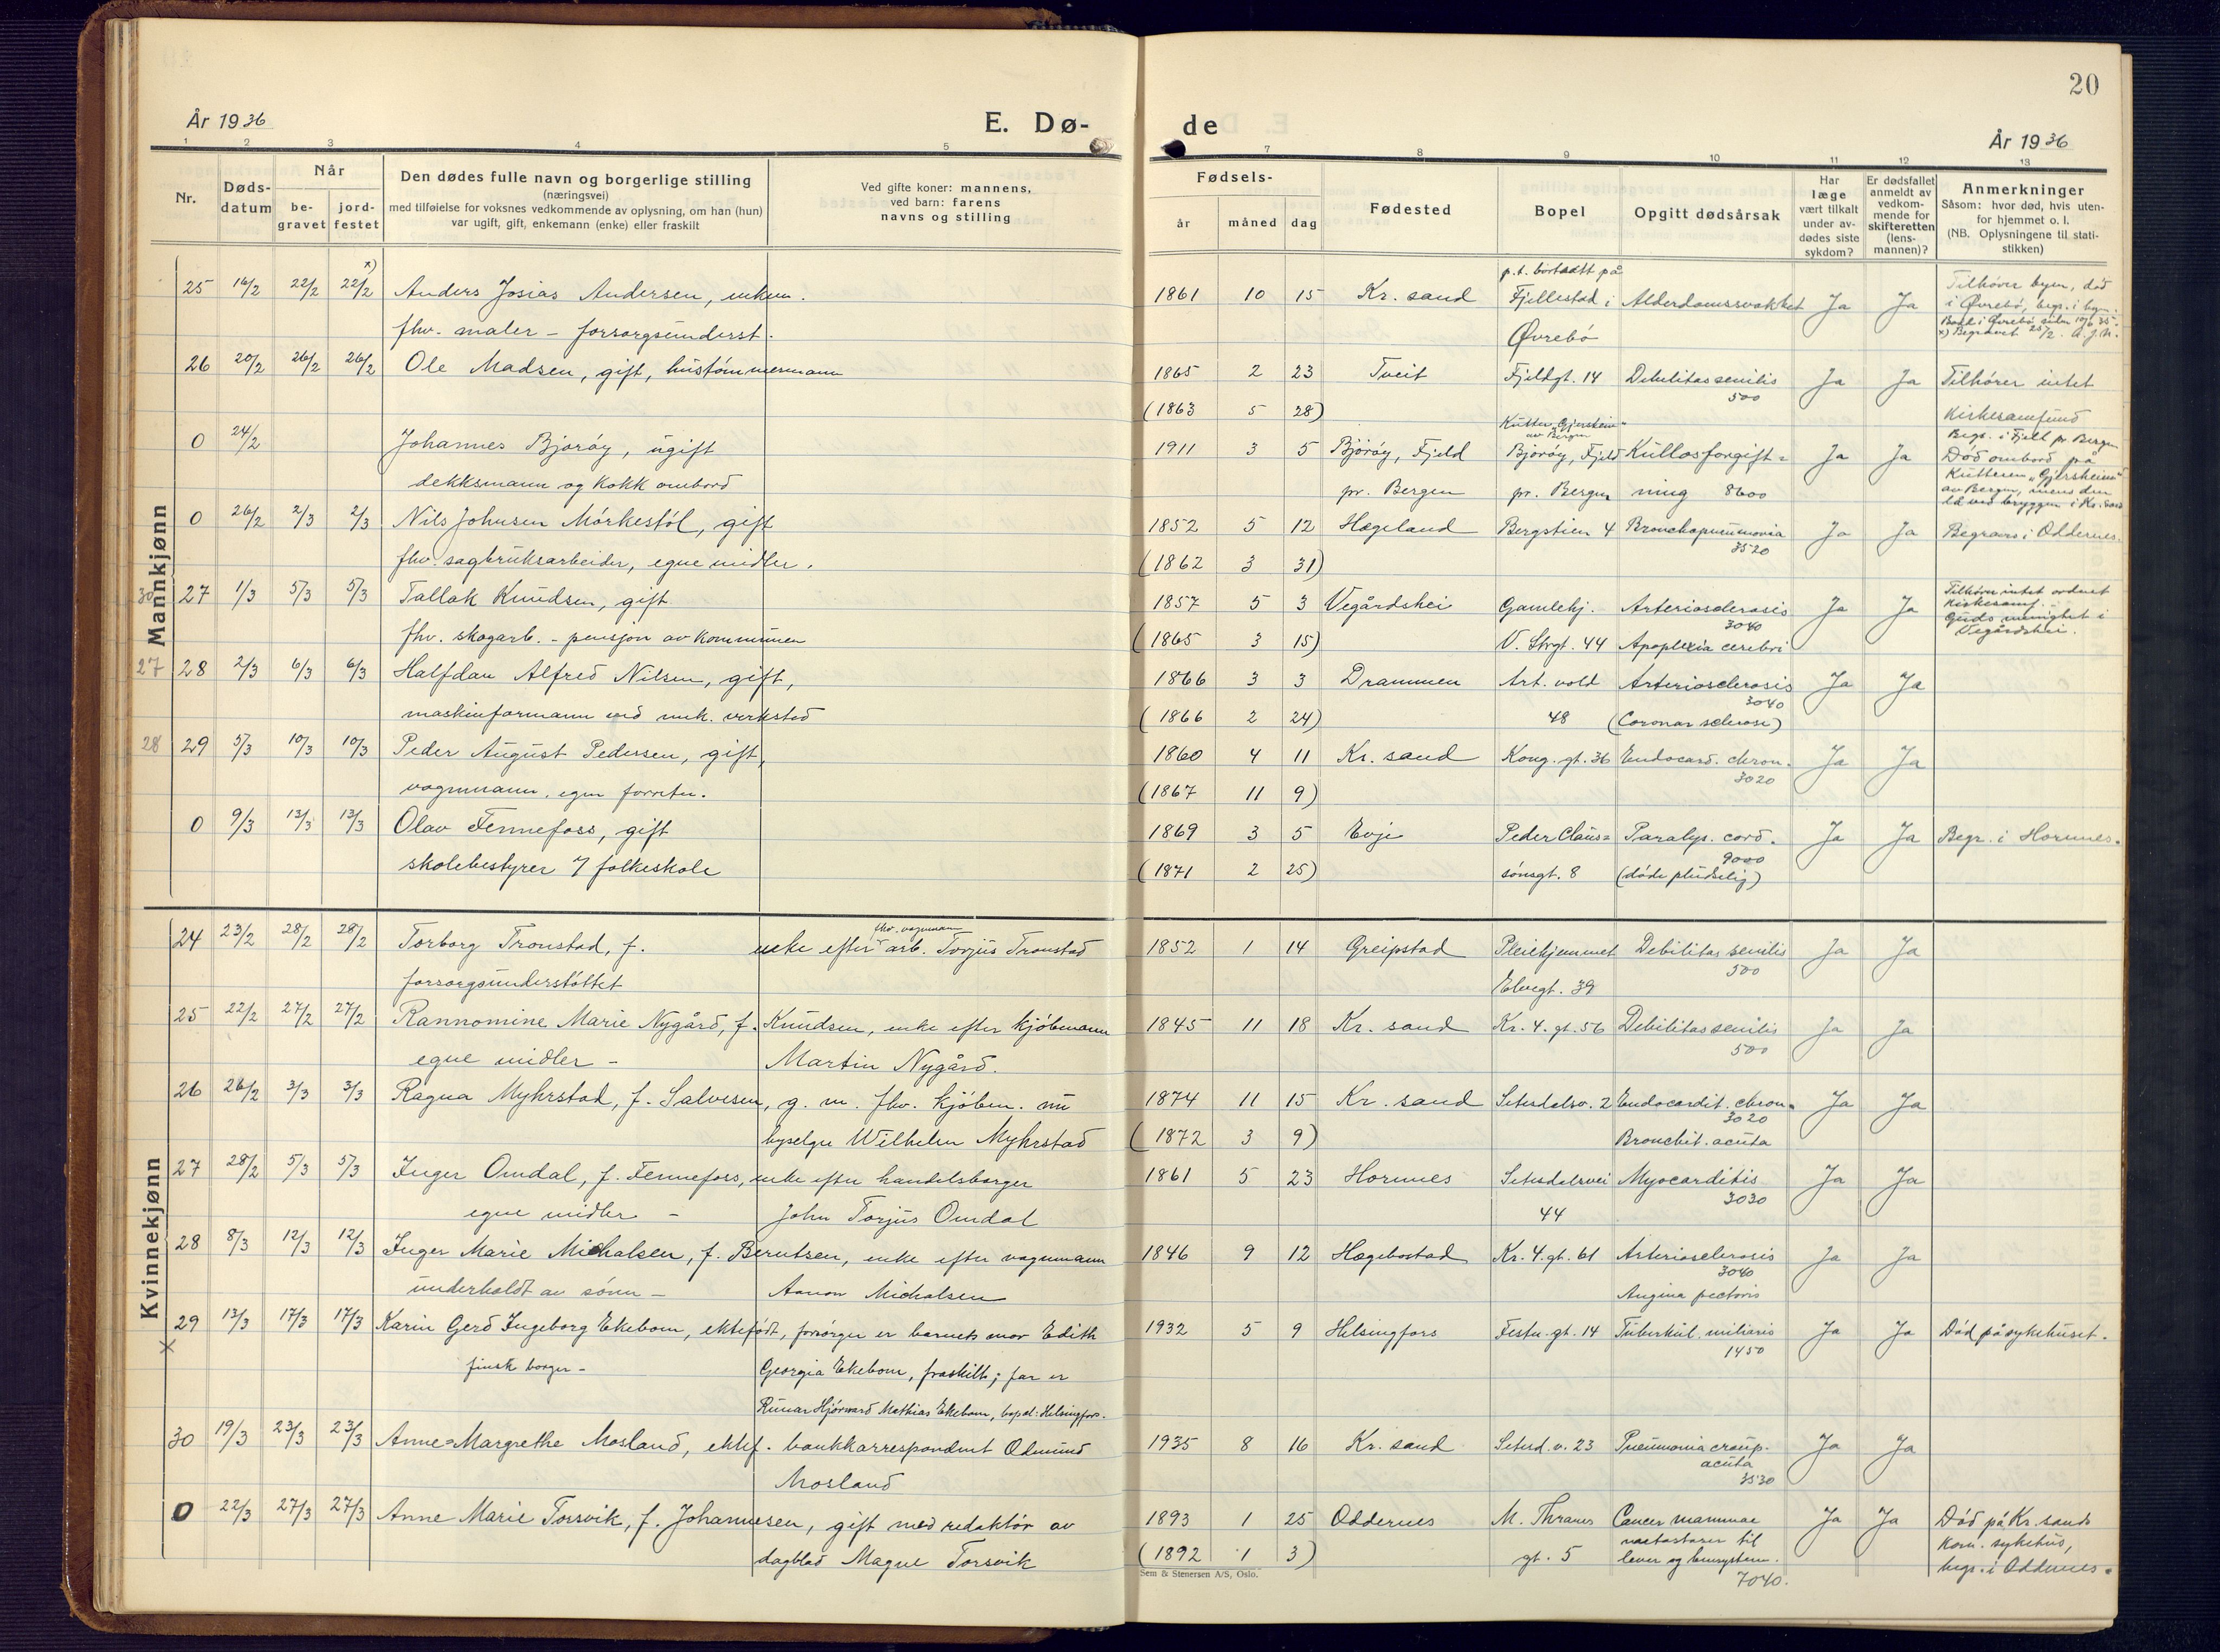 20
År 1936
E. Dø-
de
År 1936
1 2 3 4 5
7 8 9 10 11 12 13
Nr.
Døds-
datum
Når
be-
gravet
jord-
festet
Den dødes fulle navn og borgerlige stilling
(næringsvei)
med tilføielse for voksnes vedkommende av oplysning, om han (hun)
var ugift, gift, enkemann (enke) eller fraskilt
Ved gifte koner: mannens,
ved barn: farens
navns og stilling
Fødsels-
år måned dag
Fødested
Bopel
Opgitt dødsårsak
Har
læge
vært tilkalt
under av-
dødes siste
sykdom?
Er dødsfallet
anmeldt av
vedkom-
mende for
skifteretten
(lens-
mannen)?
Anmerkninger
Såsom: hvor død, hvis uten-
for hjemmet o. l.
(NB. Oplysningene til stati-
stikken)
Mannkjønn
x)
p.t. bortsatt på
25 16/2 22/2 22/2 Anders Josias Andersen, enkem. 1861 10 15 Kr. sand Fjellestad i Alderdomssvakhet Ja Ja Tilhører byen, død
i Øvrebö, begr. i byen.
fhv. maler – forsorgsunderst. Øvrebö
x) Begravet 25/2. A.J.N.
26 20/2 26/2 26/2 Ole Madsen, gift, hustömmermann 1865 2 23 Tveit Fjeldgt. 14 Debilitas senilis Ja Ja Tilhörer intet
500
(1863 5 28) kirkesamfund
Kutter "Gjersheim"
av Bergen
Begr. i Fjell pr Bergen
0 24/2 Johannes Bjoröy, ugift 1911 3 5 Björöy, Fjeld Bjoröy, Fjeld Kullosforgift= Ja Ja Död ombord på
dekksmann og kokk ombord pr. Bergen pr. Bergen ning 8600 Kutteren "Gjersheim"
av Bergen, mens den
lå ved bryggen i Kr. sand
0 26/2 2/3 2/3 Nils Johnsen Mörkestöl, gift 1852 5 12 Hægeland Bergstien 4 Bronchopneumonia Ja Ja Begraves i Oddernes.
3520
fhv. sagbruksarbeider, egne midler. (1862 3 31)
30 27 1/3 5/3 5/3 Tallak Knudsen, gift 1857 5 3 Vegårdshei Gamlehj. Arteriosclerosis Ja Ja Tilhörer intet ordnet
kirkesamf.
3040
Guds menighet i
Vegårdshei.
fhv. skogarb. – pensjon av kommunen (1865 3 15) V. Strgt. 44 Apoplexia cerebri
27 28 2/3 6/3 6/3 Halfdan Alfred Nilsen, gift, 1866 3 3 Drammen Art. vold Arteriosclerosis Ja Ja
3040
maskinformann ved mek. verksted (1866 2 24) 48 (Coronar sclerose)
28 29 5/3 10/3 10/3 Peder August Pedersen, gift, 1860 4 11 Kr. sand Kong. gt. 36 Endocard. chron. Ja Ja
3020
vognmann, egen forretn. (1867 11 9)
0 9/3 13/3 13/3 Olav Fennefoss, gift 1869 3 5 Evje Peder Claus= Paralys. cord. Ja Ja Begr. i Hornnes.
9000
skolebestyrer v/ folkeskole (1871 2 25) sönsgt. 8 (döde pludselig)
Kvinnekjønn
fhv. vognmann
24 23/2 28/2 28/2 Torborg Tronstad, f. enke efter arb. Torjus Tronstad 1852 1 14 Greipstad Pleiehjemmet Debilitas senilis Ja Ja
500
forsorgsunderstöttet Elvegt. 39
25 22/2 27/2 27/2 Rannomine Marie Nygård, f. Knudsen, enke efter kjöbmann 1845 11 18 Kr. sand Kr. 4. gt. 56 Debilitas senilis Ja Ja
500
egne midler – Martin Nygård.
26 26/2 3/3 3/3 Ragna Myhrstad, f. Salvesen, g. m. fhv. kjöbm. nu 1874 11 15 Kr. sand Setesdalsv. 2 Endocardit. chron. Ja Ja
3020
byselger Wilhelm Myhrstad (1872 3 9) Bronchit. acuta
27 28/2 5/3 5/3 Inger Omdal, f. Fennefoss, enke efter handelsborger 1861 5 23 Hornnes Setesdalsvei Myocarditis Ja Ja
3030
egne midler – John Torjus Omdal 44
28 8/3 12/3 12/3 Inger Marie Michalsen, f. Berntsen, enke efter vognmann 1846 9 12 Hægebostad Kr. 4. gt. 61 Arteriosclerosis Ja Ja
3040
underholdt av sönn – Aanon Michalsen Angina pectoris
29 13/3 17/3 17/3 Karin Gerd Ingeborg Ekebom, ektefödt, forsörger er barnets mor Edith 1932 5 9 Helsingfors Festn. gt. 14 Tuberkul. miliaris Ja Ja Död på sykehuset.
x
1450
finsk borger – Georgia Ekebom, fraskilt; far er
Runar Hjörvard Mathias Ekebom, bopel: Helsingfors.
30 19/3 23/3 23/3 Anne-Margrethe Mosland, ektef. bankkorrespondent Odmund 1935 8 16 Kr. sand Setesd. v. 23 Pneumonia croup. Ja Ja
acuta
3530
Mosland
0 22/3 27/3 27/3 Anne Marie Torsvik, f. Johannesen, gift med redaktör av 1893 1 25 Oddernes M. Thranes Cancer mammae Ja Ja Död på Kr. sands
dagblad Magne Torsvik (1892 1 3) gt. 5 metastaser til
lever og
kom. sykehus,
begr. i Oddernes.
7040.
Sem & Stenersen A/S, Oslo.